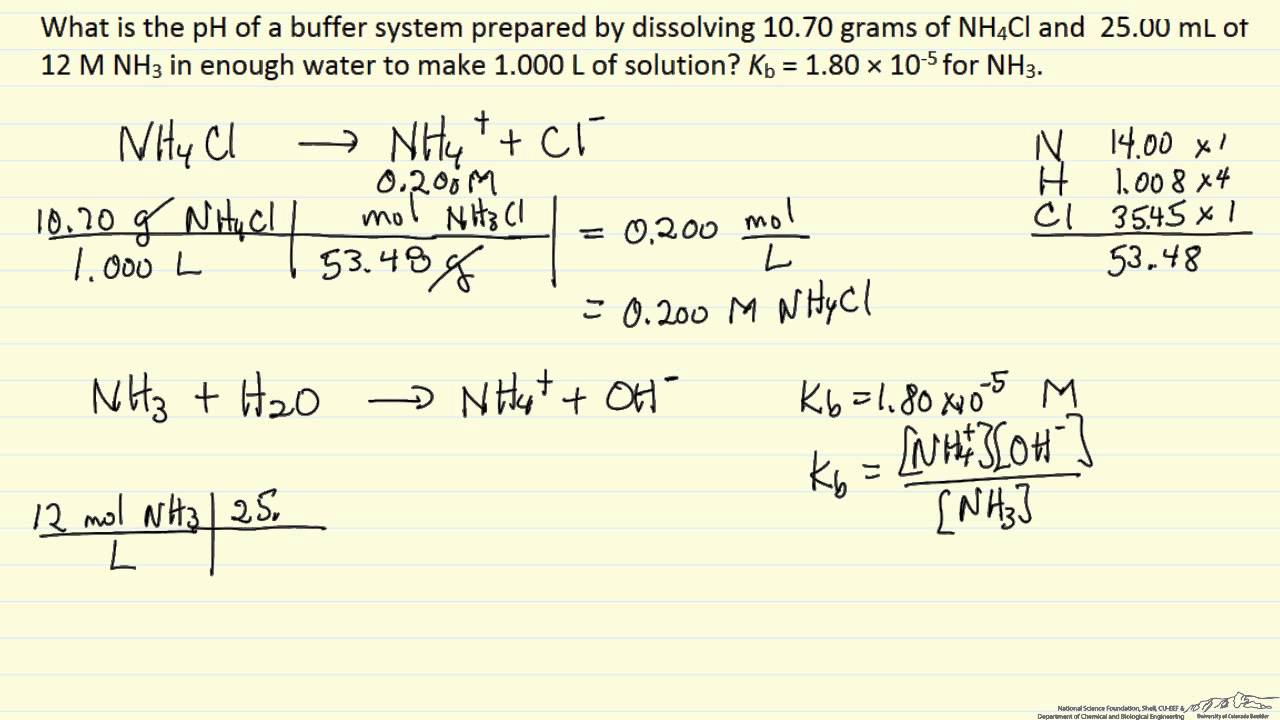 What is the pH of a buffer system prepared by dissolving 10.70 grams of NH₄Cl and 25.00 mL of
12 M NH₃ in enough water to make 1.000 L of solution? Kb = 1.80 × 10⁻⁵ for NH₃.
NH₄Cl → NH₄⁺ + Cl⁻
0.200 M
N 14.00 x 1
H 1.008 x 4
Cl 35.45 x 1
53.48
10.70 g NH₄Cl | mol NH₃Cl = 0.200 mol
1.000 L | 53.48 g L
= 0.200 M NH₄Cl
NH₃ + H₂O → NH₄⁺ + OH⁻
Kb = 1.80 x 10⁻⁵ M
Kb = [NH₄⁺][OH⁻]
[NH₃]
12 mol NH₃ | 25.
L
National Science Foundation, Shell, CU-EEF &
Department of Chemical and Biological Engineering
University of Colorado Boulder